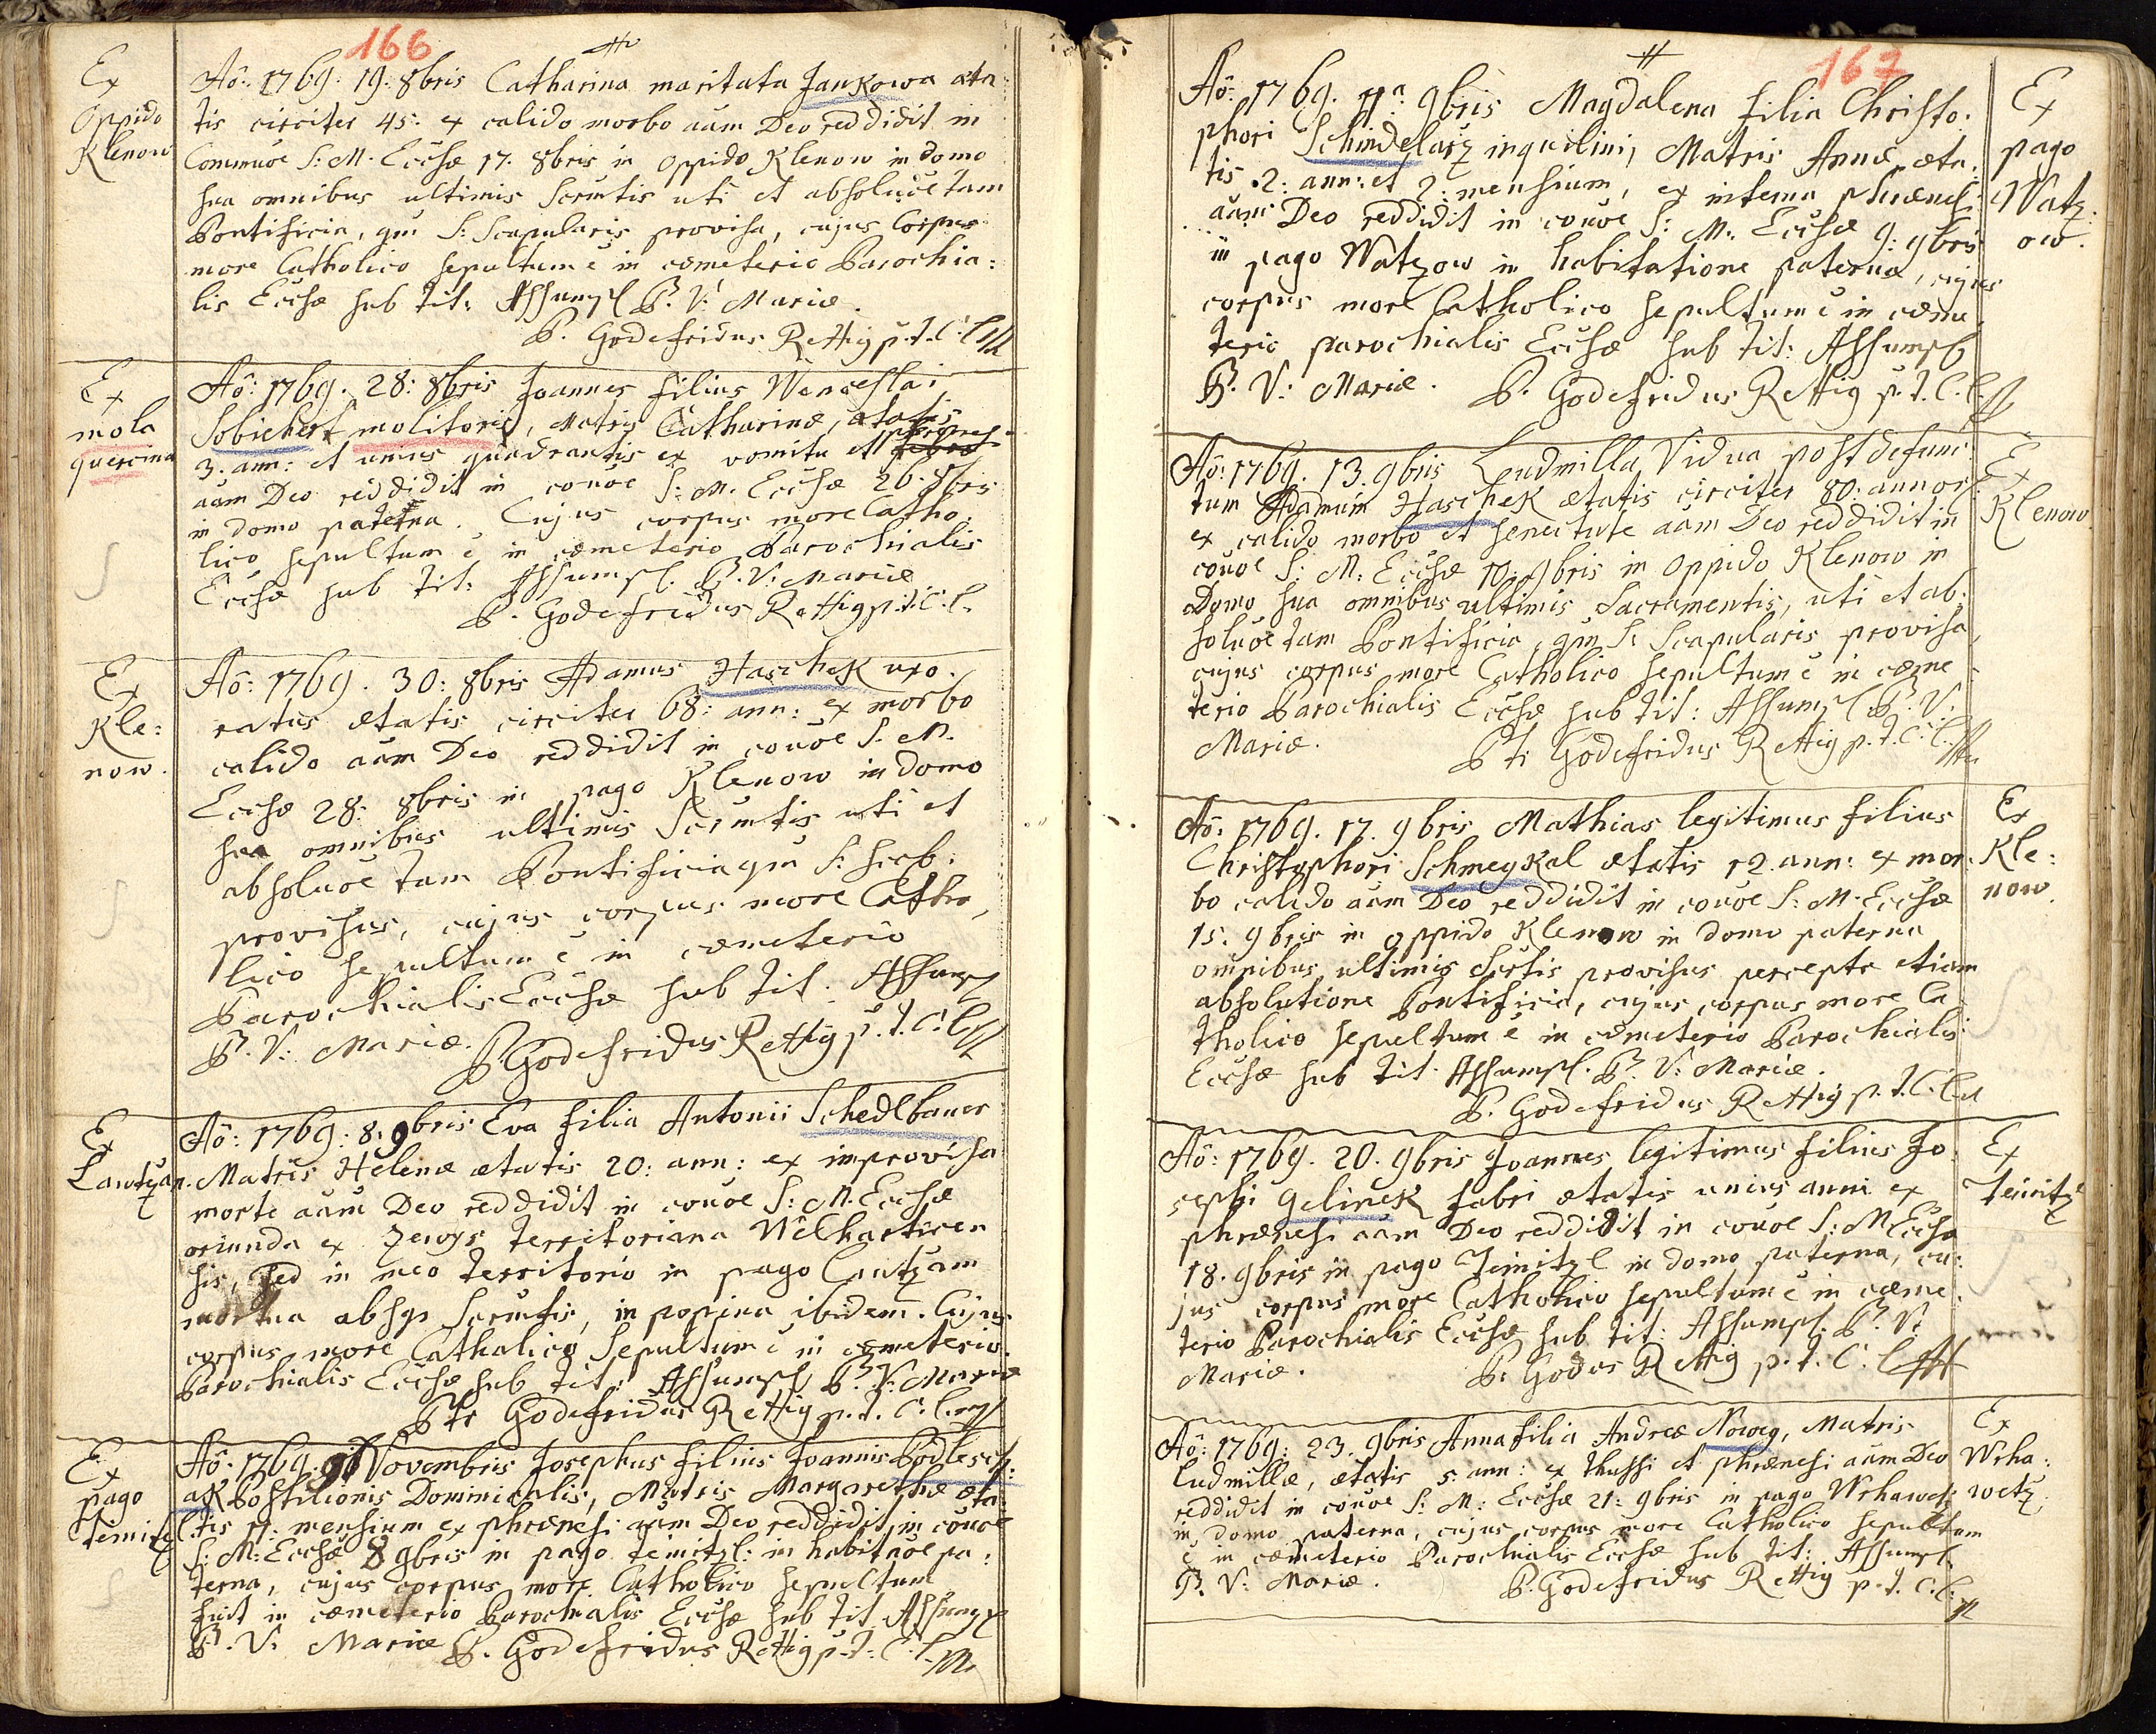 166
Ex
Oppido
Klenow
Aô: 1769: 19: 8bris Catharina maritata Jankowa æta
tis circiter 45: ex calido morbo aãm Deo reddidit in
Commuoe S: M. Ecclæ 17. 8bris in Oppido Klenow in domo
sua omnibus ultimis Scrmtis uti et absoluõe tam
Pontificia, qm S: Scapularis provisa, cujus Corpus
more Catholico sepultum ẽ in cæmeterio Parochia:
lis Ecclæ sub tit: Assumpt B. V: Mariæ.
P. Godefridus Rettig p.t. C. L.
Ex
mola
quercina
Aô: 1769. 28: 8bris Joannes filius Wenceslai
Sobichert molitoris, Matris Catharinæ, ætatis
3. ann: et unius quadrantis ex vomitu et
aãm Deo reddidit in couõe S: M. Ecclæ 26. 8bris
in domo paterna. Cujus corpus more Catho:
lico sepultum ẽ in cæmeterio Parochialis
Ecclæ sub tit: Assumpt. B. V: Mariæ
P. Godefridus Rettig p.t. C. L.
Ex
Kle:
now.
Aô: 1769. 30: 8bris Adamus Haschek uxo:
ratus ætatis circiter 68: ann: ex morbo
calido aãm Deo reddidit in couõe S. M.
Ecclæ 28: 8bris in pago Klenow in domo
sua omnibus ultimis Scrmtis uti et
absoluõe tam Pontificia qm S:
provisus, cujus corpus more Catho,
lico sepultum ẽ in cæmeterio
Parochialis Ecclæ sub tit. Assumpt
B. V: Mariæ. P Godefridus Rettig p.t. C. L.
Ex
Lautzan.
Aô: 1769: 8. 9bris Eva filia Antonii Schedlbauer
Matris Helenæ ætatis 20: ann: ex improvisa
morte aãm Deo reddidit in couõe S: M. Ecclæ
oriunda ex territoriana Welharticen
sis, sed in meo territorio in pago Lautzam
mortua absq Scrmtis, in popina ibidem. Cujus
corpus more Catholico sepultum ẽ in cæmeterio
Parochialis Ecclæ sub tit: Assumpt. B. V: Mariæ
Ptr Godefridus Rettig p.t. C. L.
Ex
pago
temitzl
Aô. 1769. Novembris Josephus filius Joannis Bodlesch:
ak Postilionis Dominicalis, Matris Margarethæ æta:
tis 11: mensium ex phrænesi aãm Deo reddidit in couõe
S: M: Ecclæ 8 9bris in pago temitzl: in habitãoe pa:
terna, cujus corpus more Catholico sepultum
fuit in cæmeterio Parochialis Ecclæ sub tit. Assumpt
B. V: Mariæ P. Godefridus Rettig p.t. C. L.
167
Aô: 1769. 11a 9bris Magdalena filia Christo:
phori Schindelarz inquilini, Matris Annæ, æta:
tis .2: ann: et 2: mensium, ex interna phrænes:
aãm Deo reddidit in couõe S: M: Ecclæ 9: 9bris
in pago Watzow in habitatione paterna, cujus
corpus more Catholico sepultum ẽ in cæme
terio parochialis Ecclæ sub tit: Assumpt
B. V: Mariæ. P. Godefridus Rettig p.t. C. L.
Ex
pago
Watz:
ow.
Aô: 1769. 13. 9bris Leudmilla Vidua post defunc
tum Adamum Haschek ætatis circiter 80: annor:
ex calido morbo et senectute aãm Deo reddidit in
couõe S: M: Ecclæ 10: 9bris in Oppido Klenow in
Domo sua omnibus ultimis Sacramentis, uti et ab:
soluõe tam Pontificia, qm S: Scapularis provisa,
cujus corpus more Catholico sepultum ẽ in cæme
terio Parochialis Ecclæ sub tit: Assumpt B. V:
Mariæ. Ptr Godefridus Rettig p.t. C. L.
Ex
Klenow
Aô: 1769. 17. 9bris Mathias legitimus filius
Christophori Schmeykal ætatis 12. ann: ex mor:
bo calido aãm Deo reddidit in couõe S: M. Ecclæ
15. 9bris in oppido Klenow in domo paterna
omnibus ultimis Scrtis provisus percepta etiam
absolutione Pontificia, cujus corpus more Ca
tholico sepultum ẽ in cæmeterio Parochialis
Ecclæ sub tit. Assumpt. B. V: Mariæ.
P. Godefridus Rettig p.t. C. L.
Ex
Kle:
now.
Aô: 1769. 20. 9bris Joannes legitimus filius Jo
sephi Gelinek fabri ætatis unius anni ex
phrænesi aãm Deo reddidit in couõe S: M Ecclæ
18. 9bris in pago Temitzl in domo paterna, cu:
jus corpus more Catholico sepultum ẽ in cæme:
terio Parochialis Ecclæ sub tit: Assumpt. B. V:
Mariæ. P. Godus Rettig p.t. C. L.
Ex
temitzl
Aô: 1769: 23. 9bris Anna filia Andreæ Nowy, Matris
Ludmillæ, ætatis 5: ann: ex thussi et phrænesi aãm Deo
reddidit in couõe S: M: Ecclæ 21: 9bris in pago Wrhawetz
in domo paterna, cujus corpus more Catholico sepultum
ẽ in cæmeterio Parochialis Ecclæ sub tit: Assumpt.
B. V: Mariæ. P. Godefridus Rettig p.t. C. L.
Ex
Wrha:
wetz